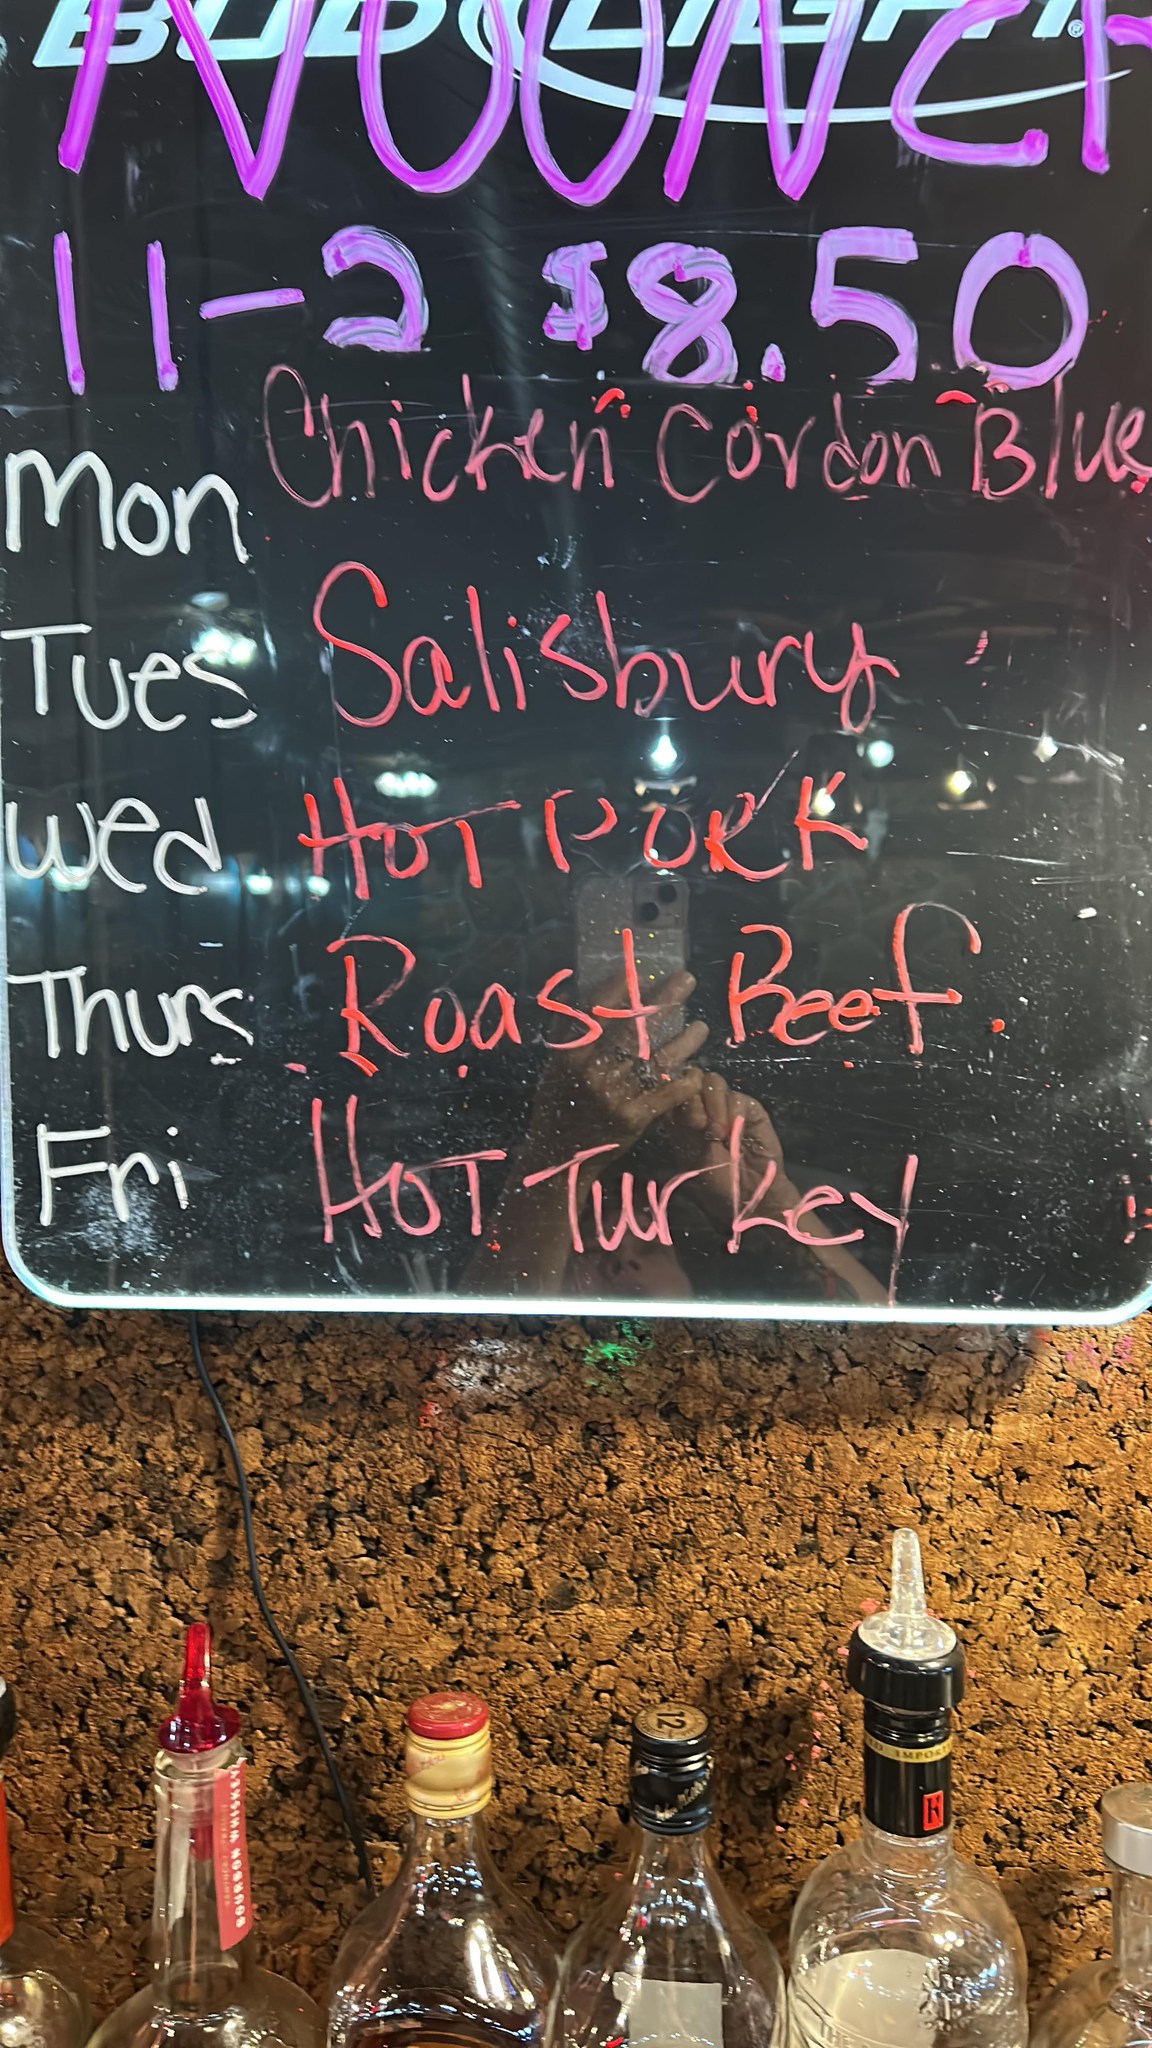 BUD LIGHT
NOONER
11-2 $8.50
Chicken Cordon Blue
Mon
Tues Salisbury
Wed HOT PORK
Thurs Roast Beef
Fri HOT Turkey
12
IMPOR
K
BOURBON WHISKEY